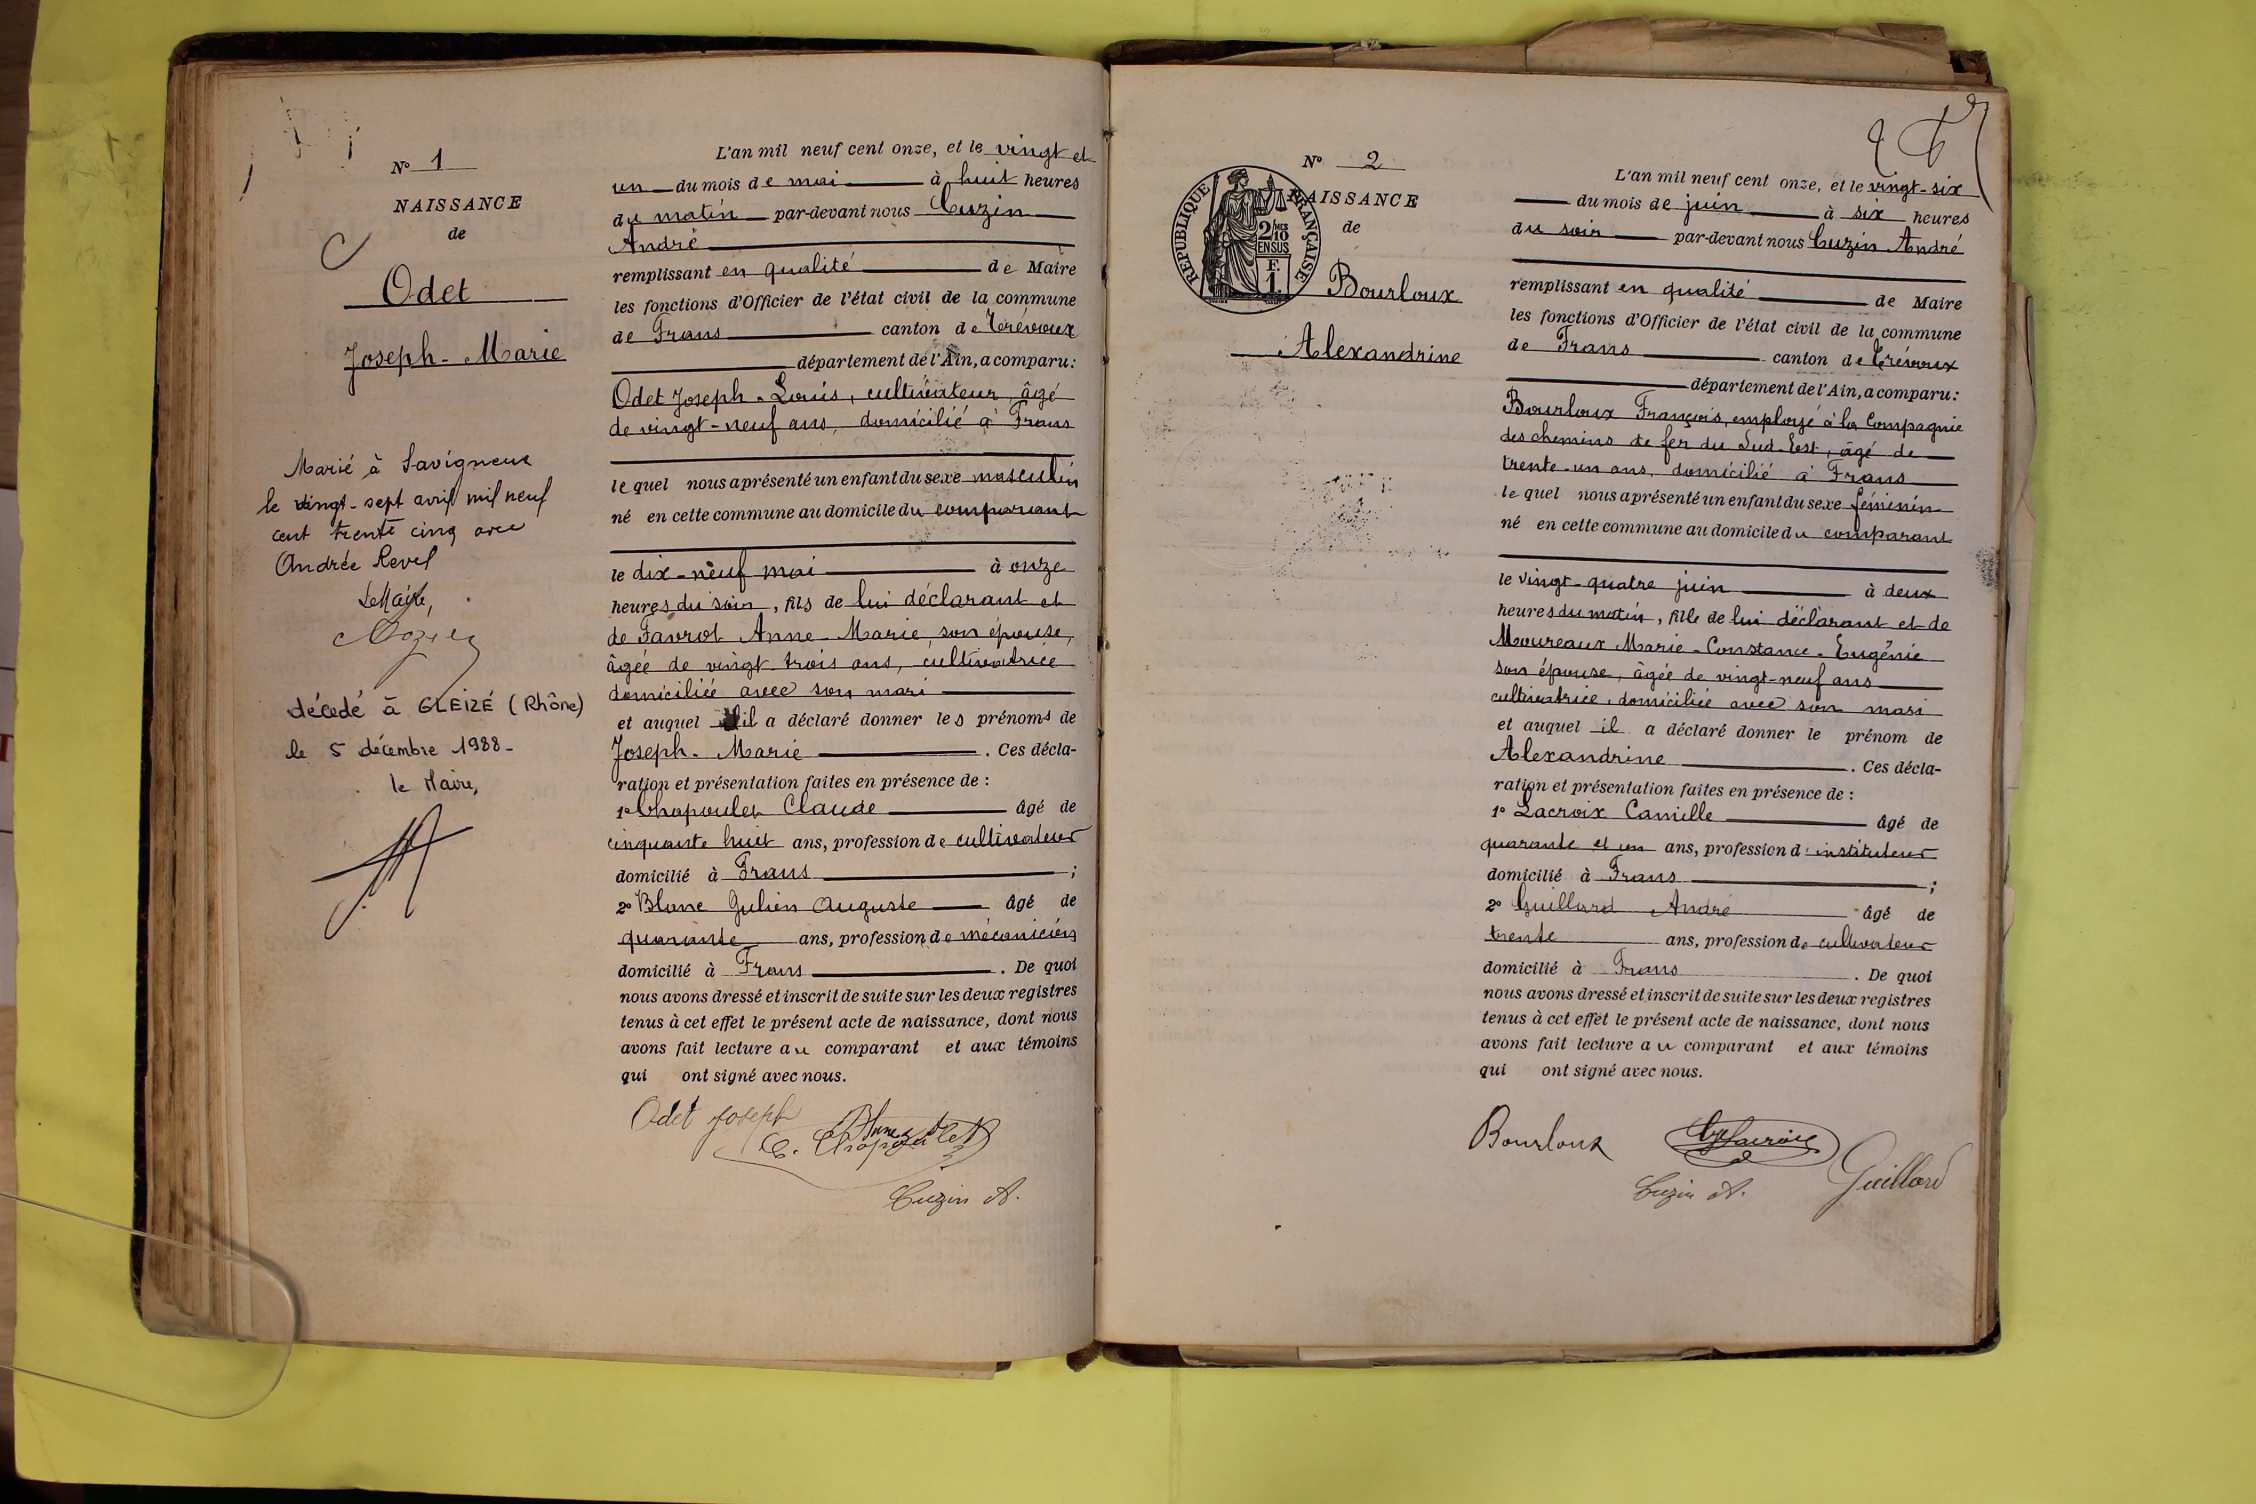 N° 1
NAISSANCE
de
Odet
Joseph-Marie
Marié à Savigneux
le vingt-sept avril mil neuf
cent trente cinq avec
Andrée Revel
Le Maire,
décédé à GLEIZÉ (Rhône)
le 5 décembre 1988-
le Maire,
L'an mil neuf cent onze, et le vingt et
un du mois de mai à huit heures
du matin par-devant nous Cuzin
André
remplissant en qualité de Maire
les fonctions d'Officier de l'état civil de la commune
de Frans canton de Trévoux
département de l'Ain, a comparu:
Odet Joseph-Louis, cultivateur, âgé
de vingt-neuf ans, domicilié à Frans
lequel nous a présenté un enfant du sexe masculin
né en cette commune au domicile du comparant
le dix-neuf mai à onze
heures du soir, fils de lui déclarant et
de Favrot Anne-Marie, son épouse,
âgée de vingt trois ans, cultivatrice
domiciliée avec son mari
et auquel il a déclaré donner les prénoms de
Joseph-Marie. Ces décla-
ration et présentation faites en présence de :
1° Chapoulet Claude âgé de
cinquante huit ans, profession de cultivateur
domicilié à Frans ;
2° Blanc Julien Auguste âgé de
quarante ans, profession de mécanicien
domicilié à Frans. De quoi
nous avons dressé et inscrit de suite sur les deux registres
tenus à cet effet le présent acte de naissance, dont nous
avons fait lecture au comparant et aux témoins
qui ont signé avec nous.
Odet Joseph
C. Chapoulet
Cuzin A.
N° 2
NAISSANCE
de
RÉPUBLIQUE FRANÇAISE
2/10
EN SUS
F.
1.
Bourloux
Alexandrine
L'an mil neuf cent onze, et le vingt-six
du mois de juin à six heures
du soir par-devant nous Cuzin André
remplissant en qualité de Maire
les fonctions d'Officier de l'état civil de la commune
de Frans canton de Trévoux
département de l'Ain, a comparu:
Bourloux François, employé à la Compagnie
des chemins de fer du Sud-Est, âgé de
trente-un ans, domicilié à Frans
lequel nous a présenté un enfant du sexe féminin
né en cette commune au domicile du comparant
le vingt-quatre juin à deux
heures du matin, fille de lui déclarant et de
Moureaux Marie-Constance-Eugénie
son épouse, âgée de vingt-neuf ans
cultivatrice, domiciliée avec son mari
et auquel il a déclaré donner le prénom de
Alexandrine. Ces décla-
ration et présentation faites en présence de :
1° Lacroix Camille âgé de
quarante et un ans, profession d'instituteur
domicilié à Frans ;
2° Guillard André âgé de
trente ans, profession de cultivateur
domicilié à Frans. De quoi
nous avons dressé et inscrit de suite sur les deux registres
tenus à cet effet le présent acte de naissance, dont nous
avons fait lecture au comparant et aux témoins
qui ont signé avec nous.
Bourloux Lacroix
Cuzin A. Guillard